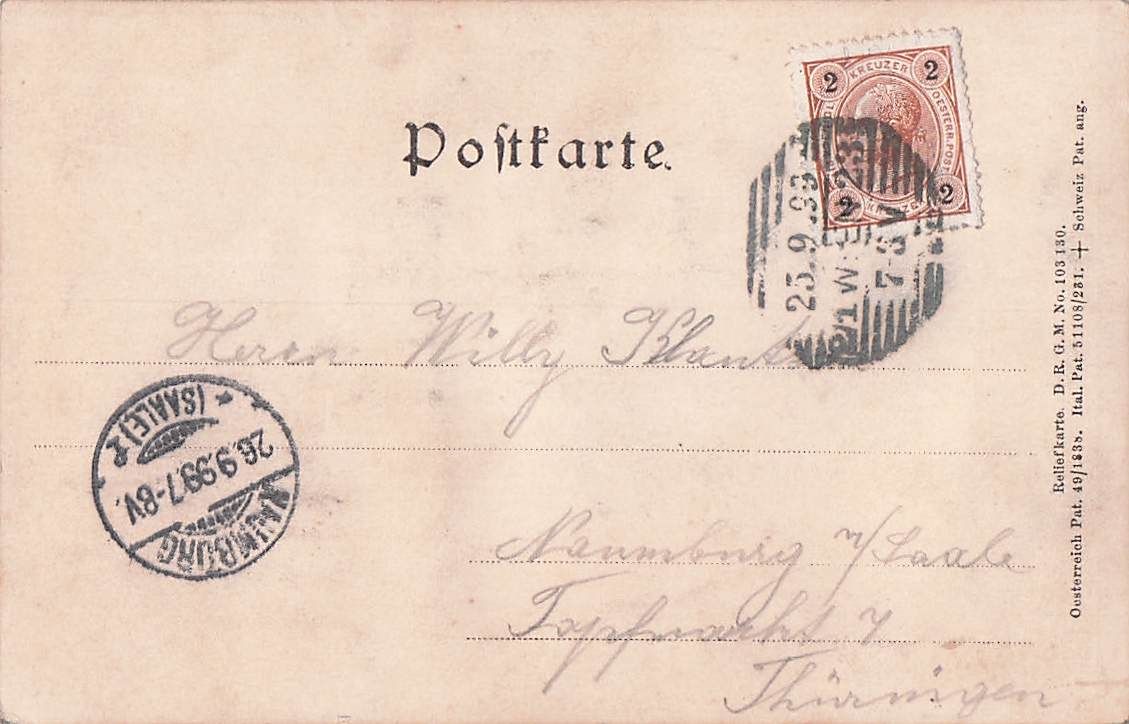 Postkarte.
2 KREUZER 2
OESTERR. POST
2 KREUZER 2
25.9.99
2/1 W
7-8V
Herrn Willy
NAUMBURG
26.9.99.7-8V.
(SAALE)
Naumburg a/Saale
Topfmarkt 7
Thüringen
Reliefkarte. D. R. G. M. No. 103130.
Oesterreich Pat. 49/1838. Ital. Pat. 51108/231. + Schweiz Pat. ang.